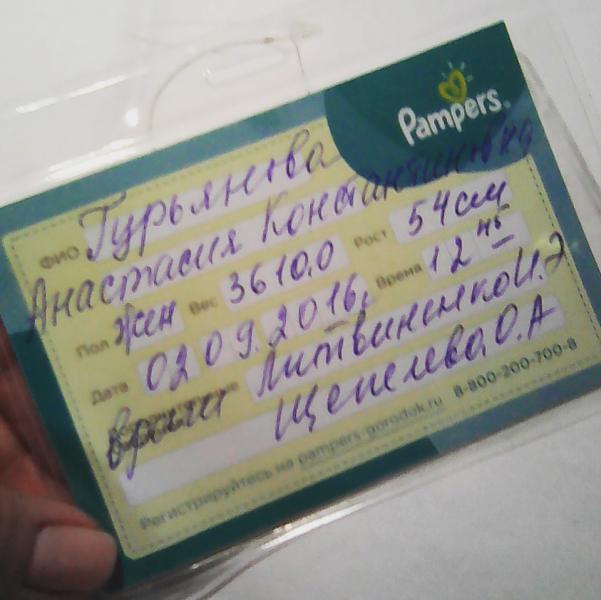 Pampers
ФИО Гурьянова
Анастасия Константиновна
Пол жен Вес 3610,0 Рост 54 см
Дата 02 09. 2016г. Время 12 45
врачи Литвиненко И. Э
Щепелева О. А
Регистрируйтесь на pampers-gorodok.ru 8-800-200-700-8